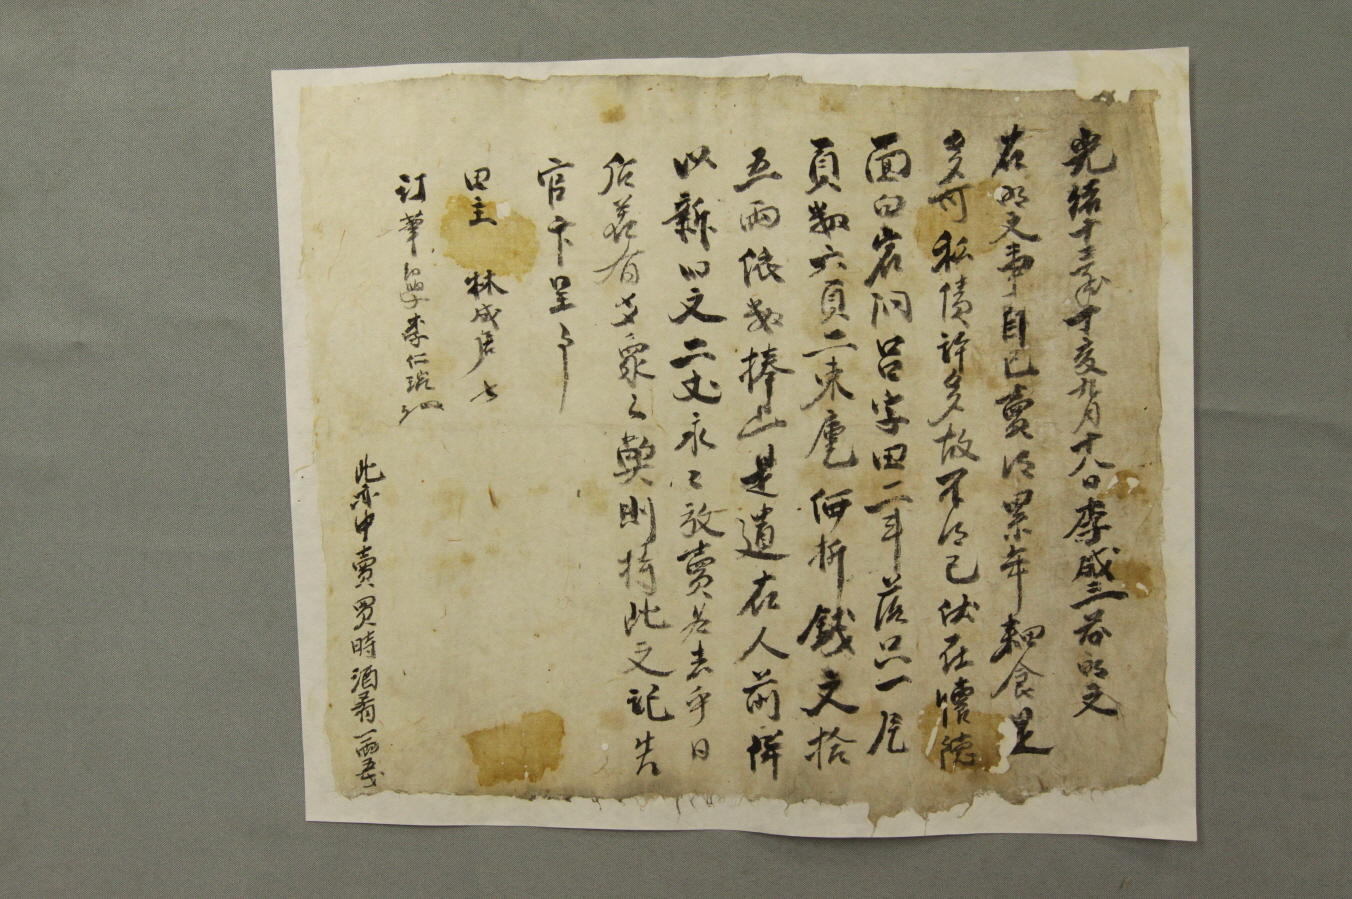 光緖十三年丁亥九月十八日李成三前明文
右明文事自己賣得累年耕食是
多可私債許多故不得已伏在
面白岩洞呂字田二斗落只一片
頁數六頁二束庫價折錢文拾
五兩依數捧上是遣右人前倂
以新旧文二丈永〻放賣爲去乎日
后若有爻象之弊則持此文記告
官卞呈事
田主 林成唐
訂筆 李仁
此亦中賣買時酒肴一兩五戔